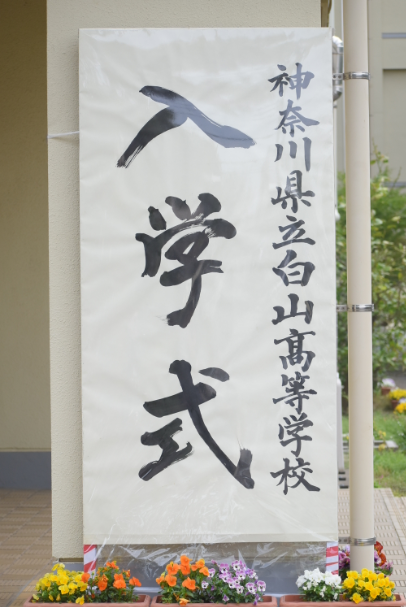 神奈川県立白山高等学校
入学式